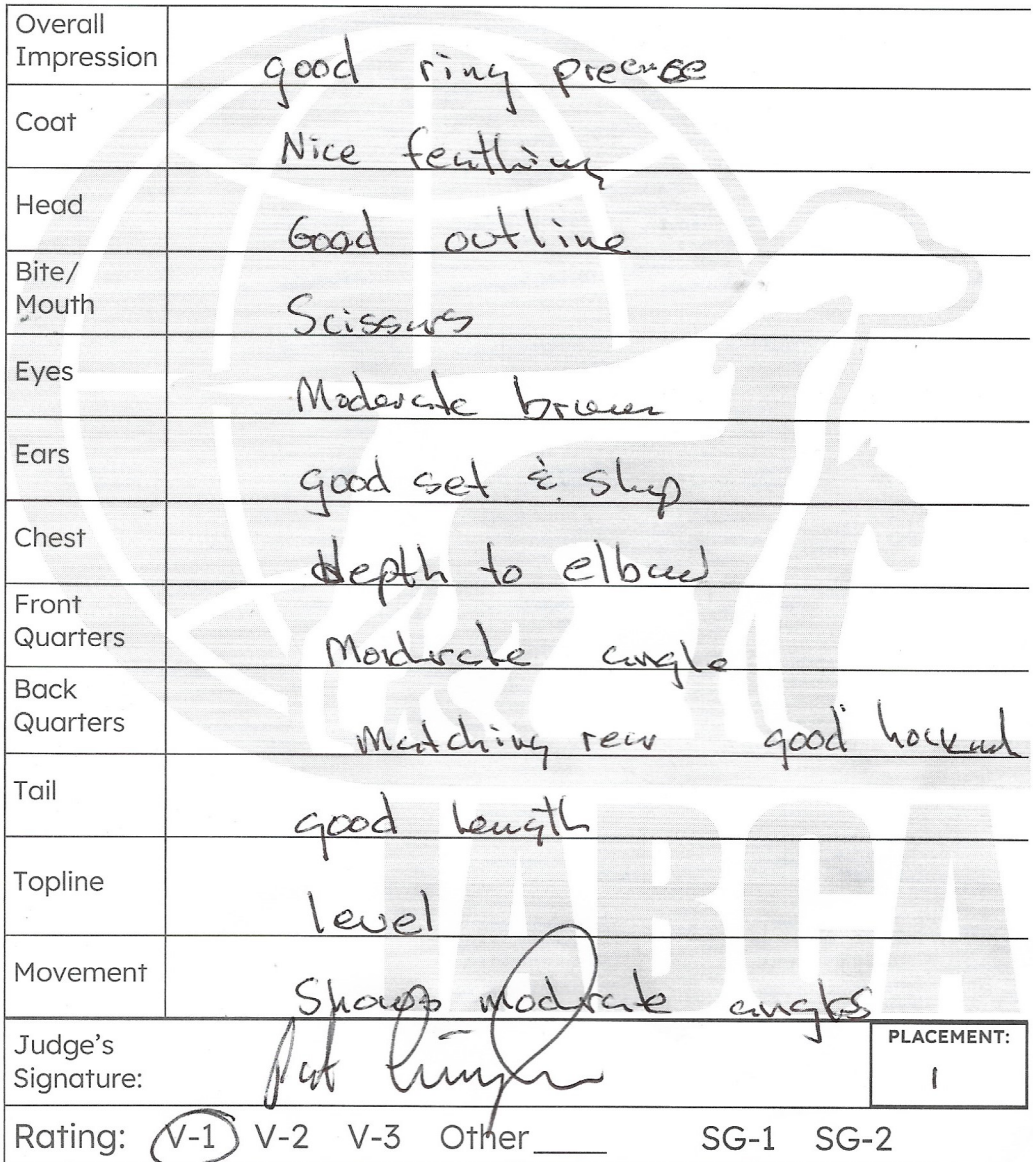 Overall
Impression
good ring precnse
Coat
Nice feathing
Head
Good outline
Bite/
Mouth
Scissurs
Eyes
Moderate brown
Ears
good set & shap
Chest
depth to elbow
Front
Quarters
Mordrcte angle
Back
Quarters
Matching rear good hockud
Tail
good length
Topline
level
Movement
Shows modrate angles
IABCA
Judge's
Signature:
PLACEMENT:
1
Rating: V-1 V-2 V-3 Other____ SG-1 SG-2